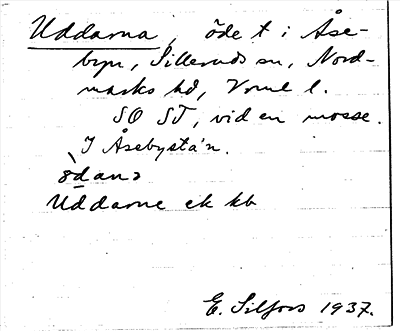 Uddarna, öde t i Åse-
byn, Silleruds sn, Nord-
marks hd, Vrml l.
SO ST, vid en mosse.
I Åsebysta'n.
ùdanɔ
Uddarne ek kb
E. Silfors 1937.